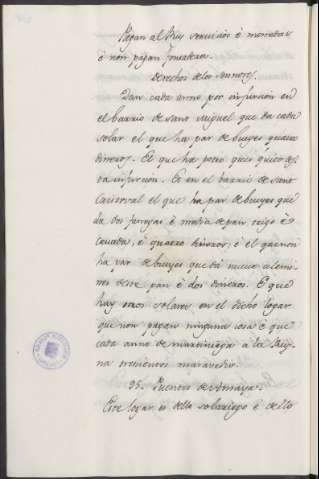 Pagan al Rey servicios é monedas
é non pagan fonsadera.
Derechos de los Sennores.
Dan cada anno por infurcion en
el barrio de sant Miguel que da cada
solar el que ha par de bueyes quatro
dineros. El que ha
da infurcion. Et en el barrio de sant
Cristoval el que ha par de bueyes que
da dos fanegas é media de pan, trigo é
cevada, é quatro dineros, é el que non
ha par de bueyes que dá nueve
deste pan é dos dineros. E que
hay otros solares en el dicho logar
que non pagan ninguna cosa é que
cada anno de martiniega á la Rey-
na trescientos maravedis.
95. Puentes de Amaya.
Este logar es dello solariego é dello